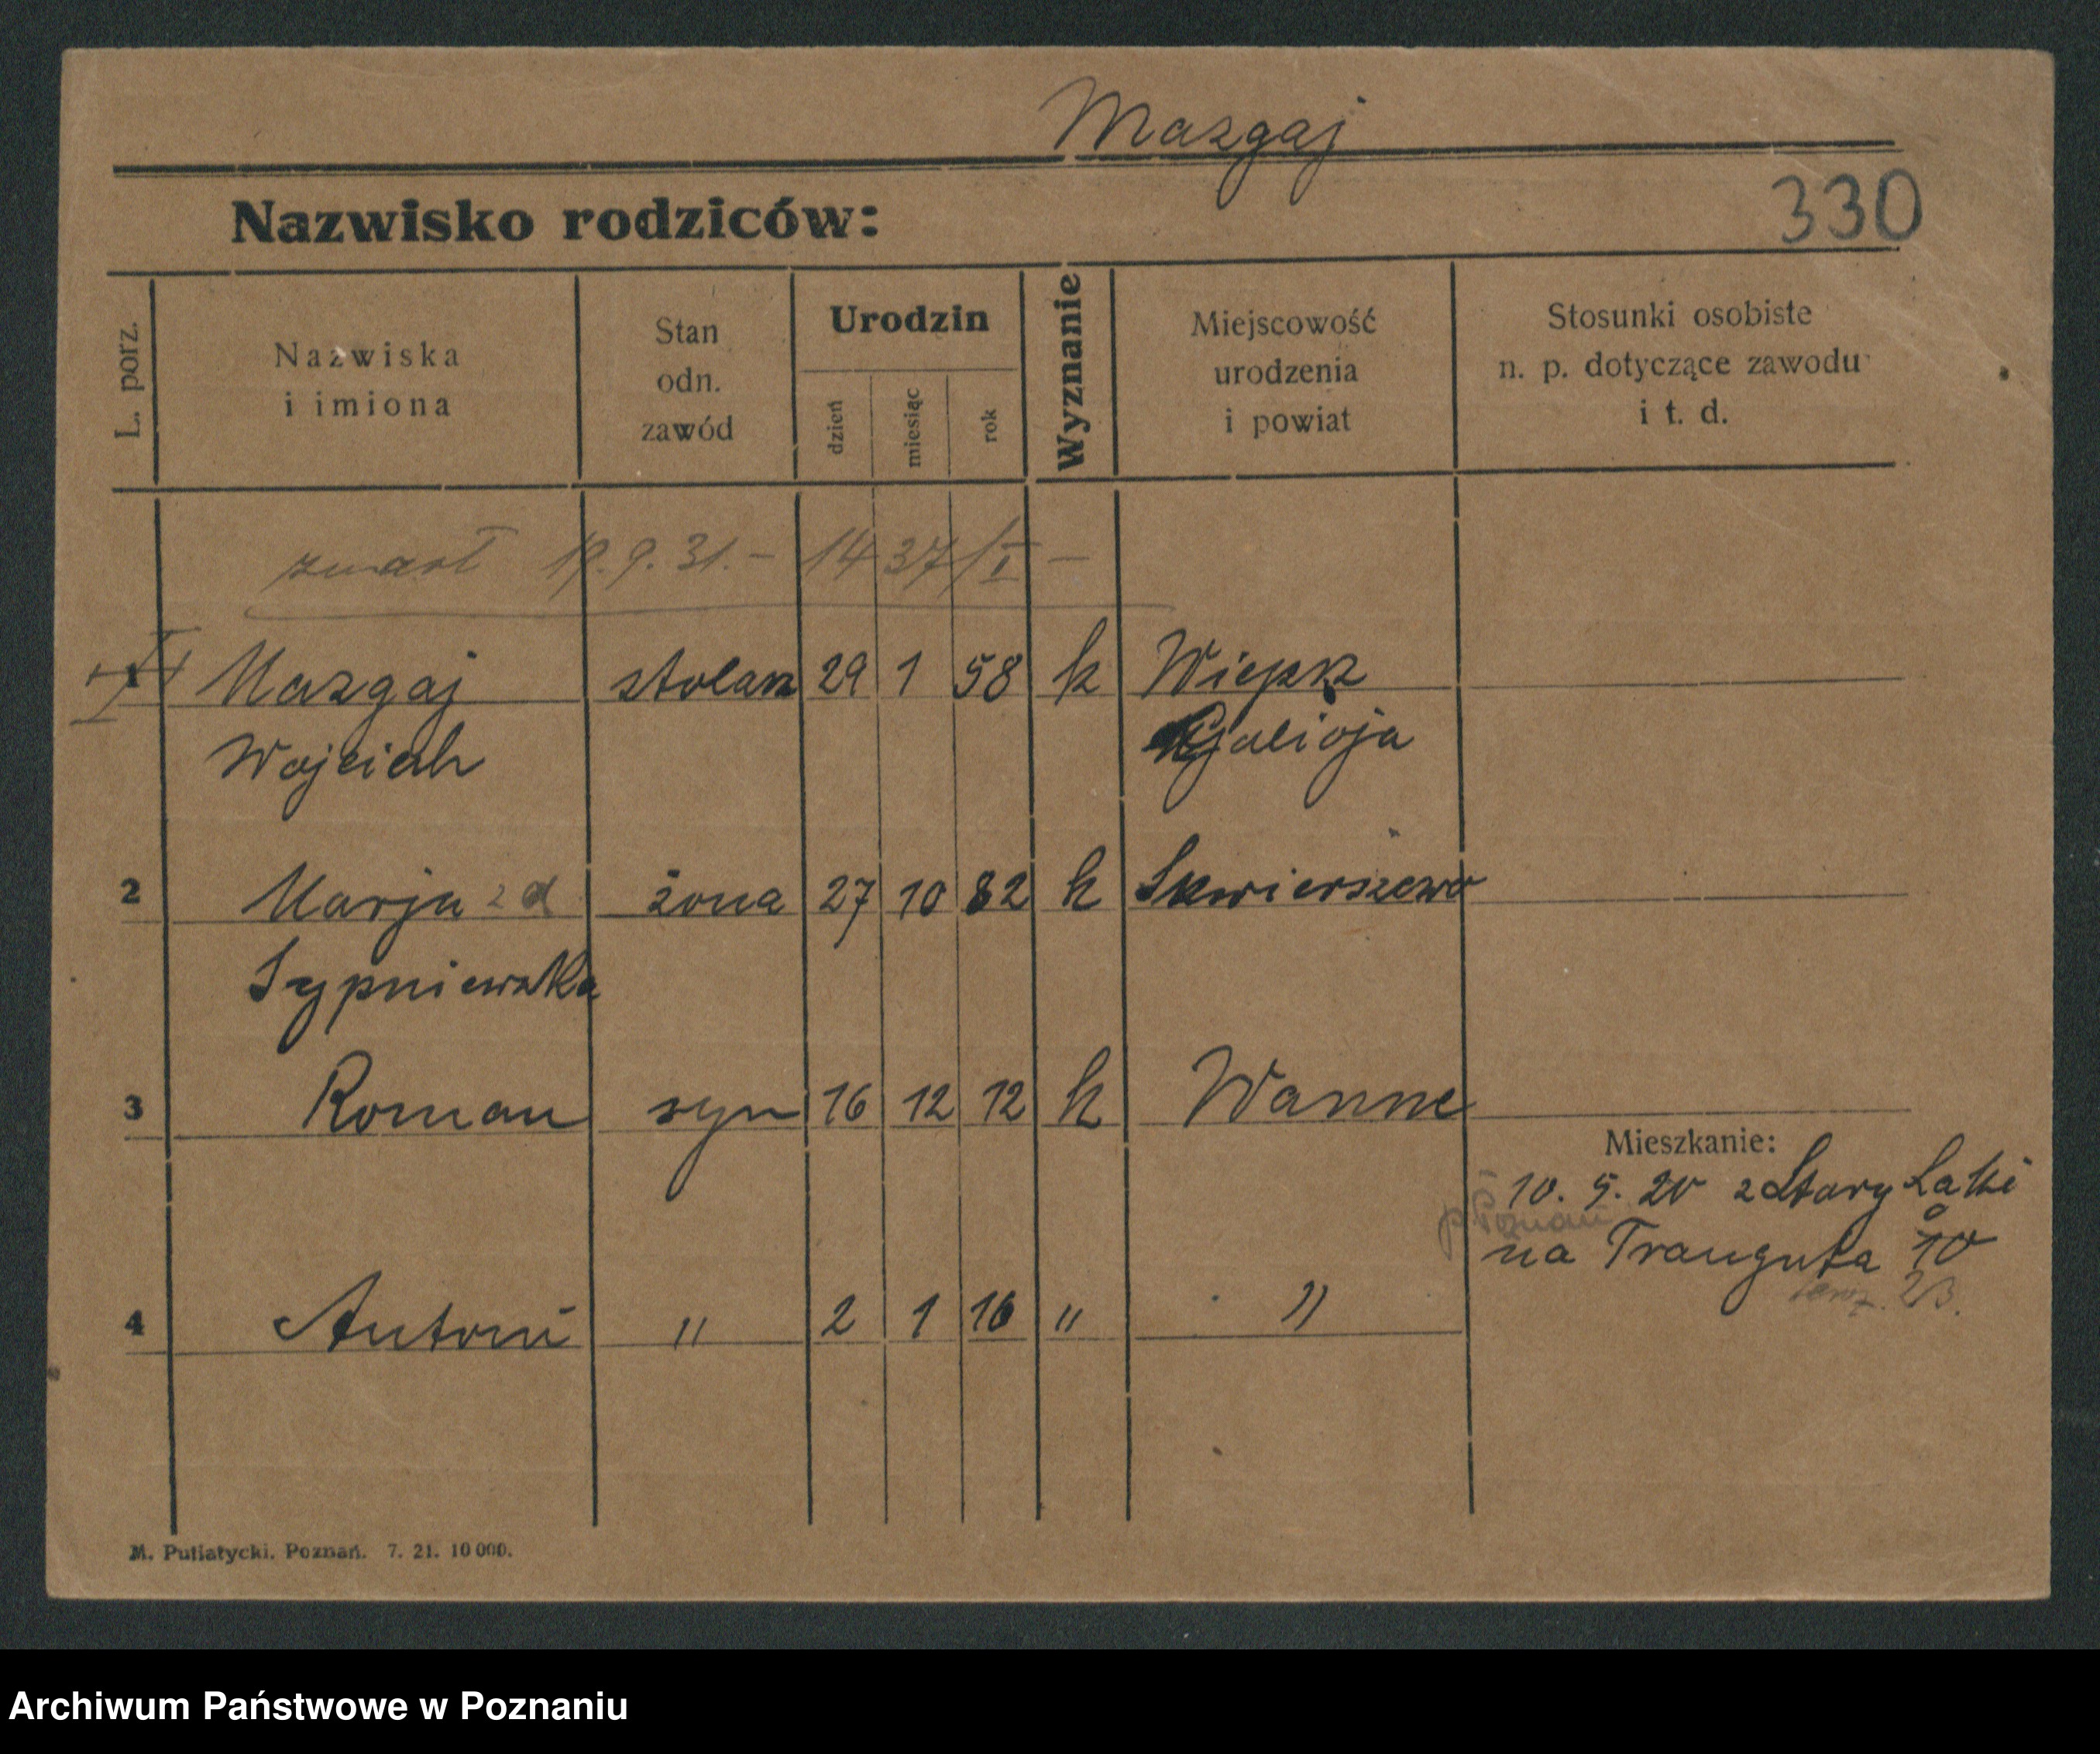 Mazgaj
Nazwisko rodziców:
330
L. porz.
Nazwiska
i imiona
Stan
odn.
zawód
Urodzin
dzień
miesiąc
rok
Wyznanie
Miejscowość
urodzenia
i powiat
Stosunki osobiste
n. p. dotyczące zawodu
i t. d.
zmarł 19.9.31. – 1437/I –
1 Mazgaj stolarz 29 1 58 k Wieprz
Wojciech Galicja
2 Marja z d żona 27 10 82 k Skwierszewo
Sypniewska
3 Roman syn 16 12 12 k Wanne
Mieszkanie:
10. 5. 20 z Stary Łaki
p. Poznań
na Trauguta 10
4 Antoni " 2 1 16 " "
23.
M. Putiatycki. Poznań. 7. 21. 10 000.
Archiwum Państwowe w Poznaniu